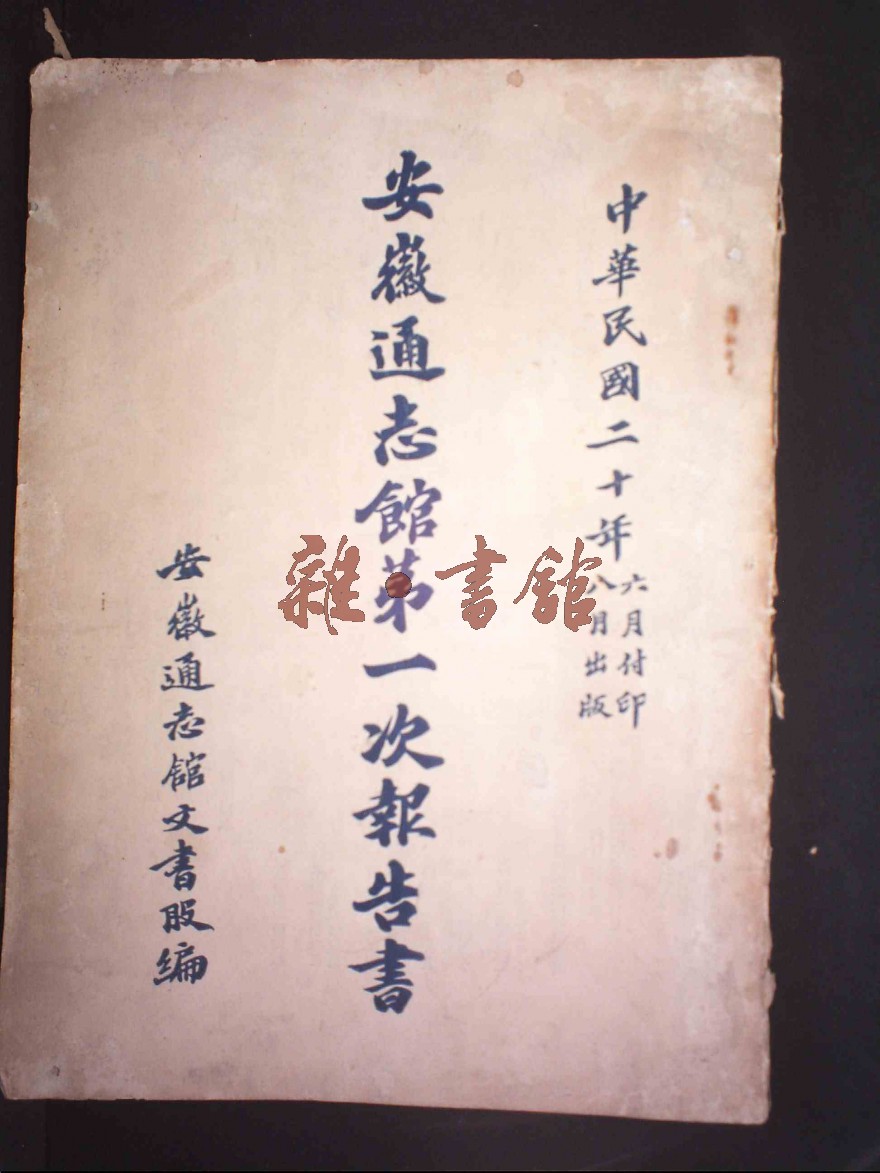 中華民國二十年
六月付印
八月出版
安徽通志館第一次報告書
安徽通志館文書股編
雜·書館